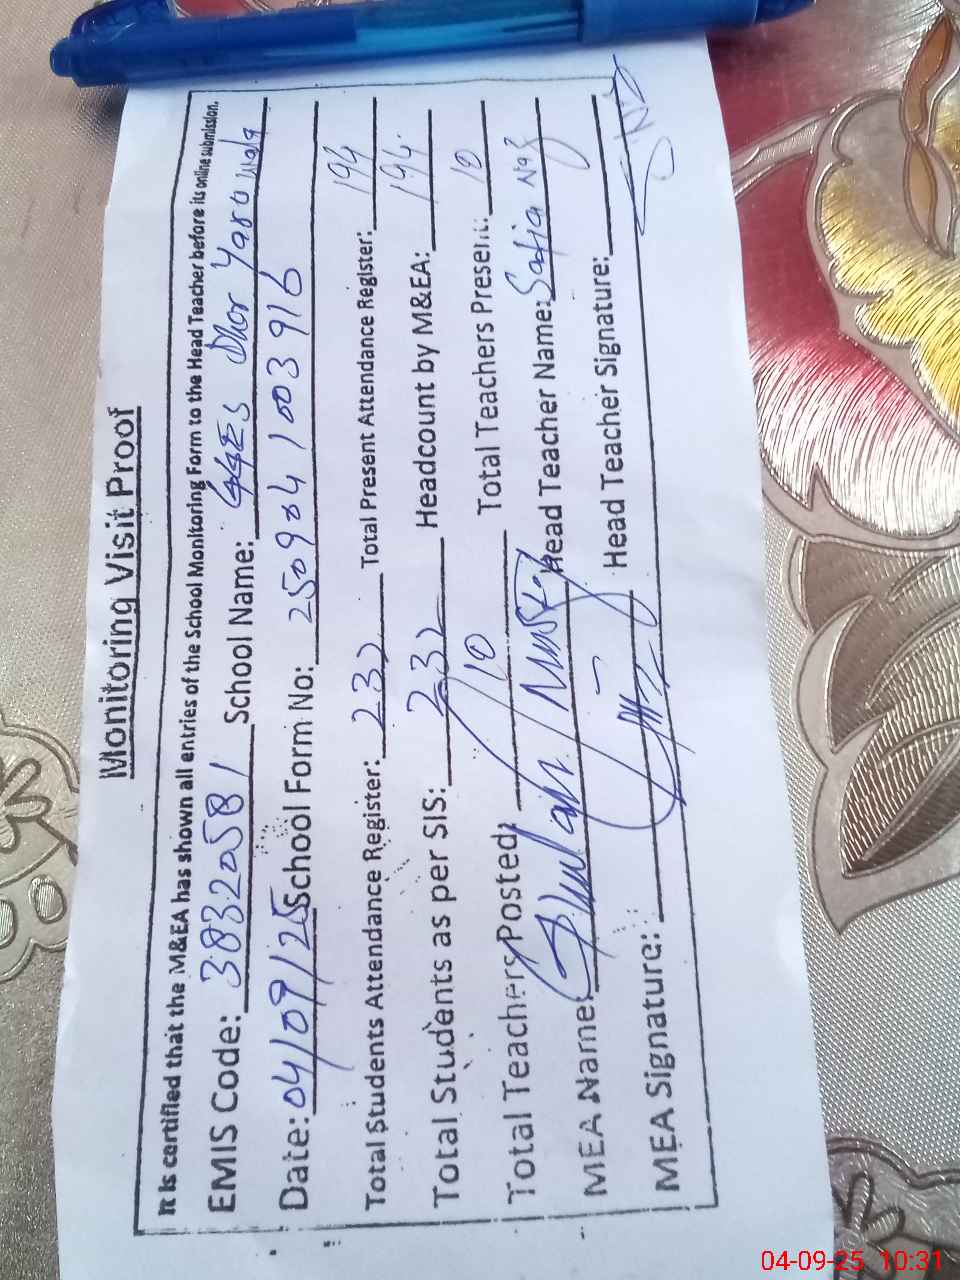 Monitoring Visit Proof
It is certified that the M&EA has shown all entries of the School Monitoring Form to the Head Teacher before its online submission.
EMIS Code: 38320581 School Name: GGES Dhor Yaro wala
Date: 04/09/25 School Form No: 2509041003916
Total Students Attendance Register: 232 Total Present Attendance Register: 194
Total Students as per SIS: 232 Headcount by M&EA: 194
Total Teachers Posted: 10 Total Teachers Present: 10
MEA Name: Head Teacher Name: Safia Naz
MEA Signature: Head Teacher Signature:
04-09-25 10:31